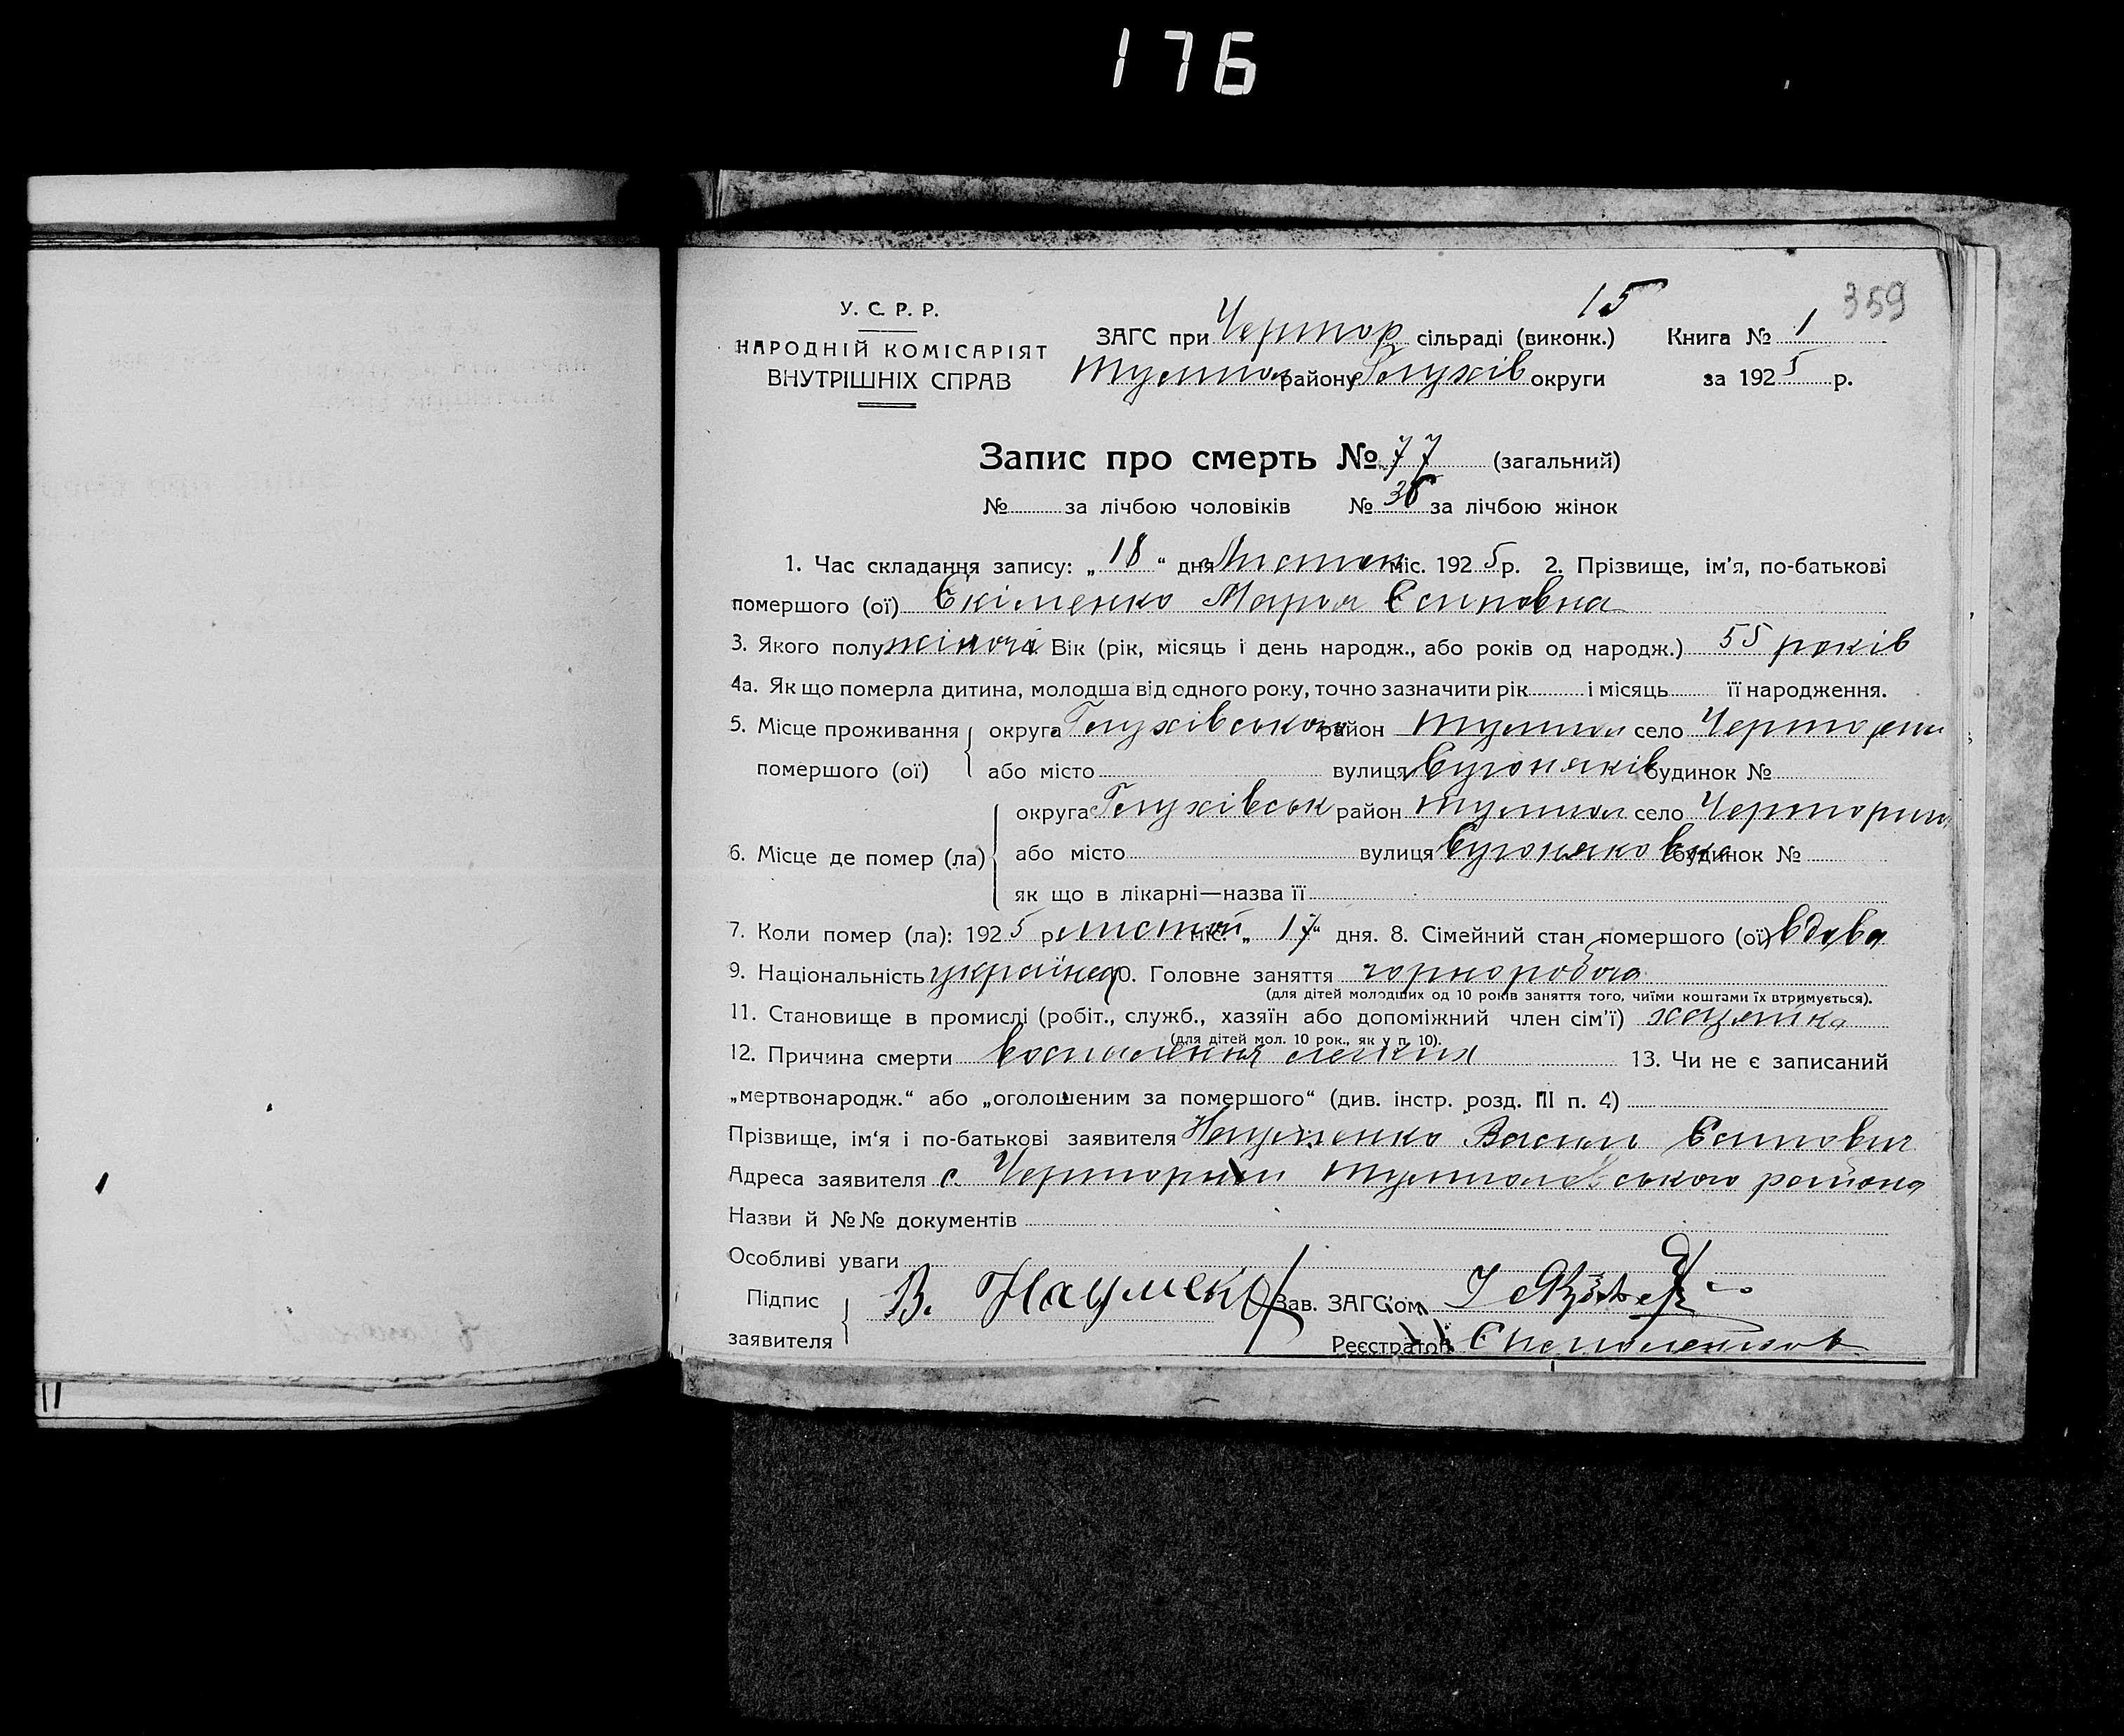 176
15
359
У. С. Р. Р.
НАРОДНІЙ КОМІСАРІЯТ
ВНУТРІШНІХ СПРАВ
ЗАГС при Чертор сільраді (виконк.) Книга № 1
району Глухів округи за 1925 р.
Запис про смерть № 77 (загальний)
№ за лічбою чоловіків № за лічбою жінок
1. Час складання запису: „18“ дня міс. 1925 р. 2. Прізвище, ім'я, по-батькові
помершого (ої) Єкіменко Мария Єсиповна
3. Якого полу жіночі Вік (рік, місяць і день народж., або років од народж.) 55 років
4а. Як що померла дитина, молодша від одного року, точно зазначити рік і місяць її народження.
5. Місце проживання округа Глухівського район село
помершого (ої) або місто вулиця будинок №
округа Глухівськ район село
6. Місце де помер (ла) або місто вулиця будинок №
як що в лікарні—назва її
7. Коли помер (ла): 1925 р. міс. „17“ дня. 8. Сімейний стан помершого (ої) вдова
9. Національність українка 10. Головне заняття чорноробоча
(для дітей молодших од 10 років заняття того, чиїми коштами їх втримується).
11. Становище в промислі (робіт., служб., хазяїн або допоміжний член сім'ї) хазяйка
(для дітей мол. 10 рок., як у п. 10).
12. Причина смерти воспалення легких 13. Чи не є записаний
„мертвонародж.“ або „оголошеним за помершого“ (див. інстр. розд. III п. 4)
Прізвище, ім'я і по-батькові заявителя Науменко Василь Єсипович
Адреса заявителя с. району
Назви й №№ документів
Особливі уваги
Підпис В. Науменко Зав. ЗАГС'ом
заявителя Реєстратор